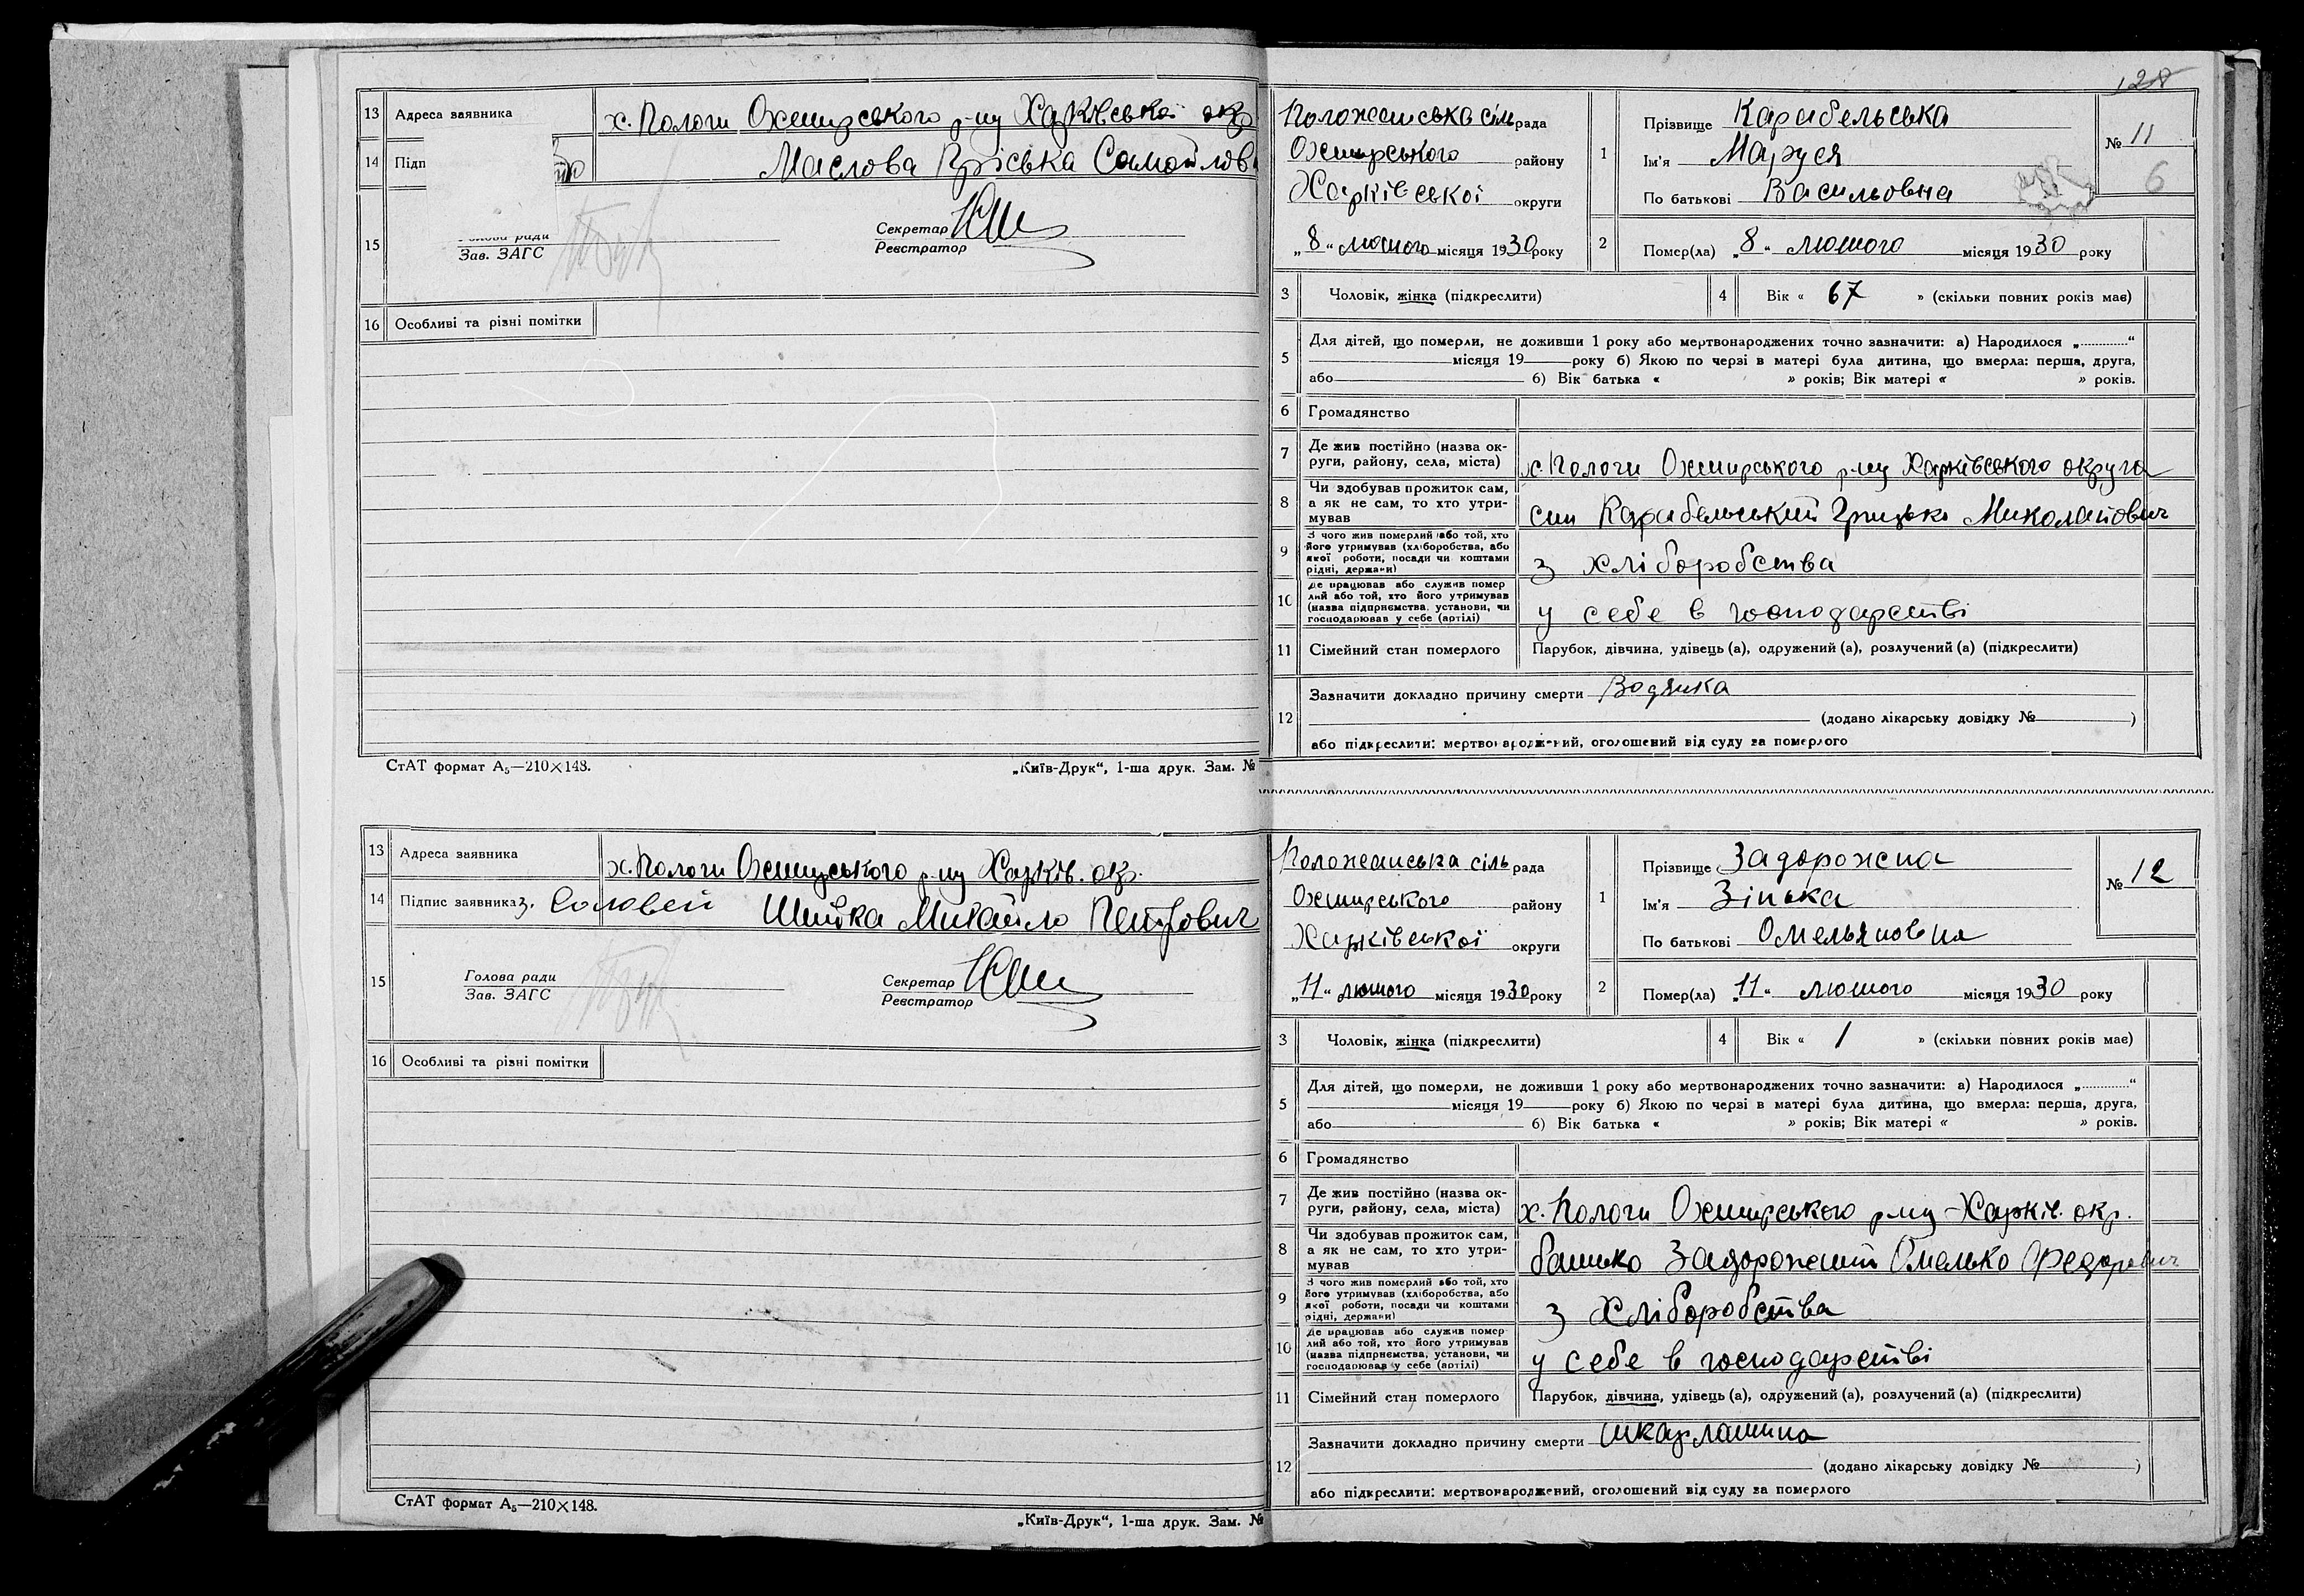 13 Адреса заявника х. Пологи Охтирського р-ну Харківської окр
14 Підп Маслова Пріська Самойлов
15 Голова ради
Зав. ЗАГС
Секретар
Реєстратор
16 Особливі та різні помітки
СтАТ формат А₅—210×148. „Київ-Друк“, 1-ша друк. Зам. №
13 Адреса заявника х. Пологи Охтирського р-ну Харків. окр.
14 Підпис заявника з. Соловей Шийка Михайло Петрович
15 Голова ради
Зав. ЗАГС
Секретар
Реєстратор
16 Особливі та різні помітки
СтАТ формат А₅—210×148.
„Київ-Друк“, 1-ша друк. Зам. №
128
Положанська сільрада
Охтирського району
Харківської округи
„8“ лютого місяця 1930 року
1 Прізвище Карабельська
Ім'я Маруся
По батькові Васильовна
№ 11
6
2 Помер(ла) „8“ лютого місяця 1930 року
3 Чоловік, жінка (підкреслити) 4 Вік « 67 » (скільки повних років має)
5 Для дітей, що померли, не доживши 1 року або мертвонароджених точно зазначити: а) Народилося „............“
місяця 19 року б) Якою по черзі в матері була дитина, що вмерла: перша, друга,
або б) Вік батька « » років; Вік матері « » років.
6 Громадянство
7 Де жив постійно (назва ок-
руги, району, села, міста) х. Пологи Охтирського р-ну Харківського округа
8 Чи здобував прожиток сам,
а як не сам, то хто утри-
мував син Карабельський Грицько Миколайович
9 З чого жив померлий або той, хто
його утримував (хліборобства, або
якої роботи, посади чи коштами
рідні, держави) з хліборобства
10 Де працював або служив помер
лий або той, хто його утримував
(назва підприємства, установи, чи
господарював у себе (артілі) у себе в господарстві
11 Сімейний стан померлого Парубок, дівчина, удівець (а), одружений (а), розлучений (а) (підкреслити)
12 Зазначити докладно причину смерти Водянка
(додано лікарську довідку № )
або підкреслити: мертвонароджений, оголошений від суду за померлого
Положанська сільрада
Охтирського району
Харківської округи
„11“ лютого місяця 1930 року
1 Прізвище Задорожна
Ім'я Зінька
По батькові Омельяновна
№ 12
2 Помер(ла) „11“ лютого місяця 1930 року
3 Чоловік, жінка (підкреслити) 4 Вік « 1 » (скільки повних років має)
5 Для дітей, що померли, не доживши 1 року або мертвонароджених точно зазначити: а) Народилося „............“
місяця 19 року б) Якою по черзі в матері була дитина, що вмерла: перша, друга,
або б) Вік батька « » років; Вік матері « » років.
6 Громадянство
7 Де жив постійно (назва ок-
руги, району, села, міста) х. Пологи Охтирського р-ну Харків. окр.
8 Чи здобував прожиток сам,
а як не сам, то хто утри-
мував батько Задорожний Омелько Федорович
9 З чого жив померлий або той, хто
його утримував (хліборобства, або
якої роботи, посади чи коштами
рідні, держави) з хліборобства
10 Де працював або служив помер
лий або той, хто його утримував
(назва підприємства, установи, чи
господарював у себе (артілі) у себе в господарстві
11 Сімейний стан померлого Парубок, дівчина, удівець (а), одружений (а), розлучений (а) (підкреслити)
12 Зазначити докладно причину смерти шкарлатина
(додано лікарську довідку № )
або підкреслити: мертвонароджений, оголошений від суду за померлого